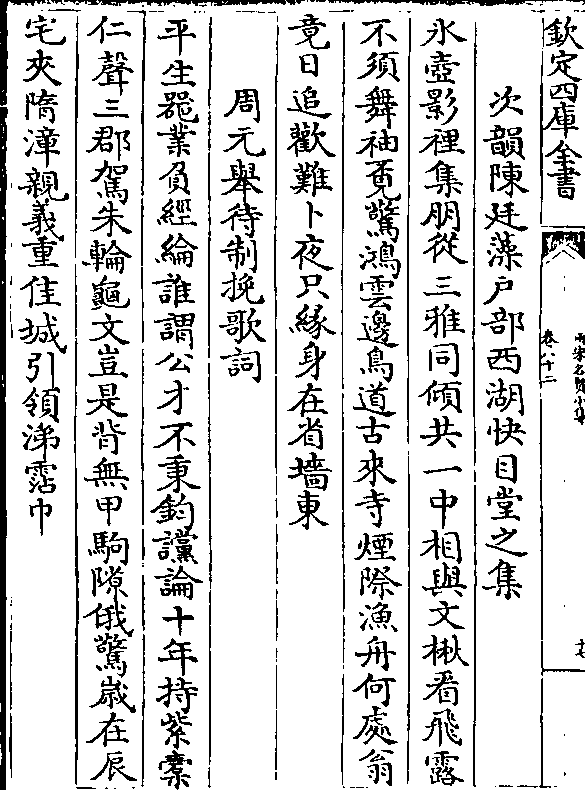 欽定四庫全書
兩宋名賢小集
卷八十二
十七
次韻陳廷藻户部西湖快目堂之集
氷壺影裡集朋從三雅同傾共一中相與文楸看飛露
不須舞袖覔驚鴻雲邊鳥道古來寺煙際漁舟何處翁
竟日追歡難卜夜只緣身在省墻東
周元舉待制挽歌詞
平生器業負經綸誰謂公才不秉鈞讜論十年持紫橐
仁聲三郡駕朱輪龜文豈是背無甲駒隙俄驚歳在辰
宅夾隋漳親義重佳城引領涕霑巾